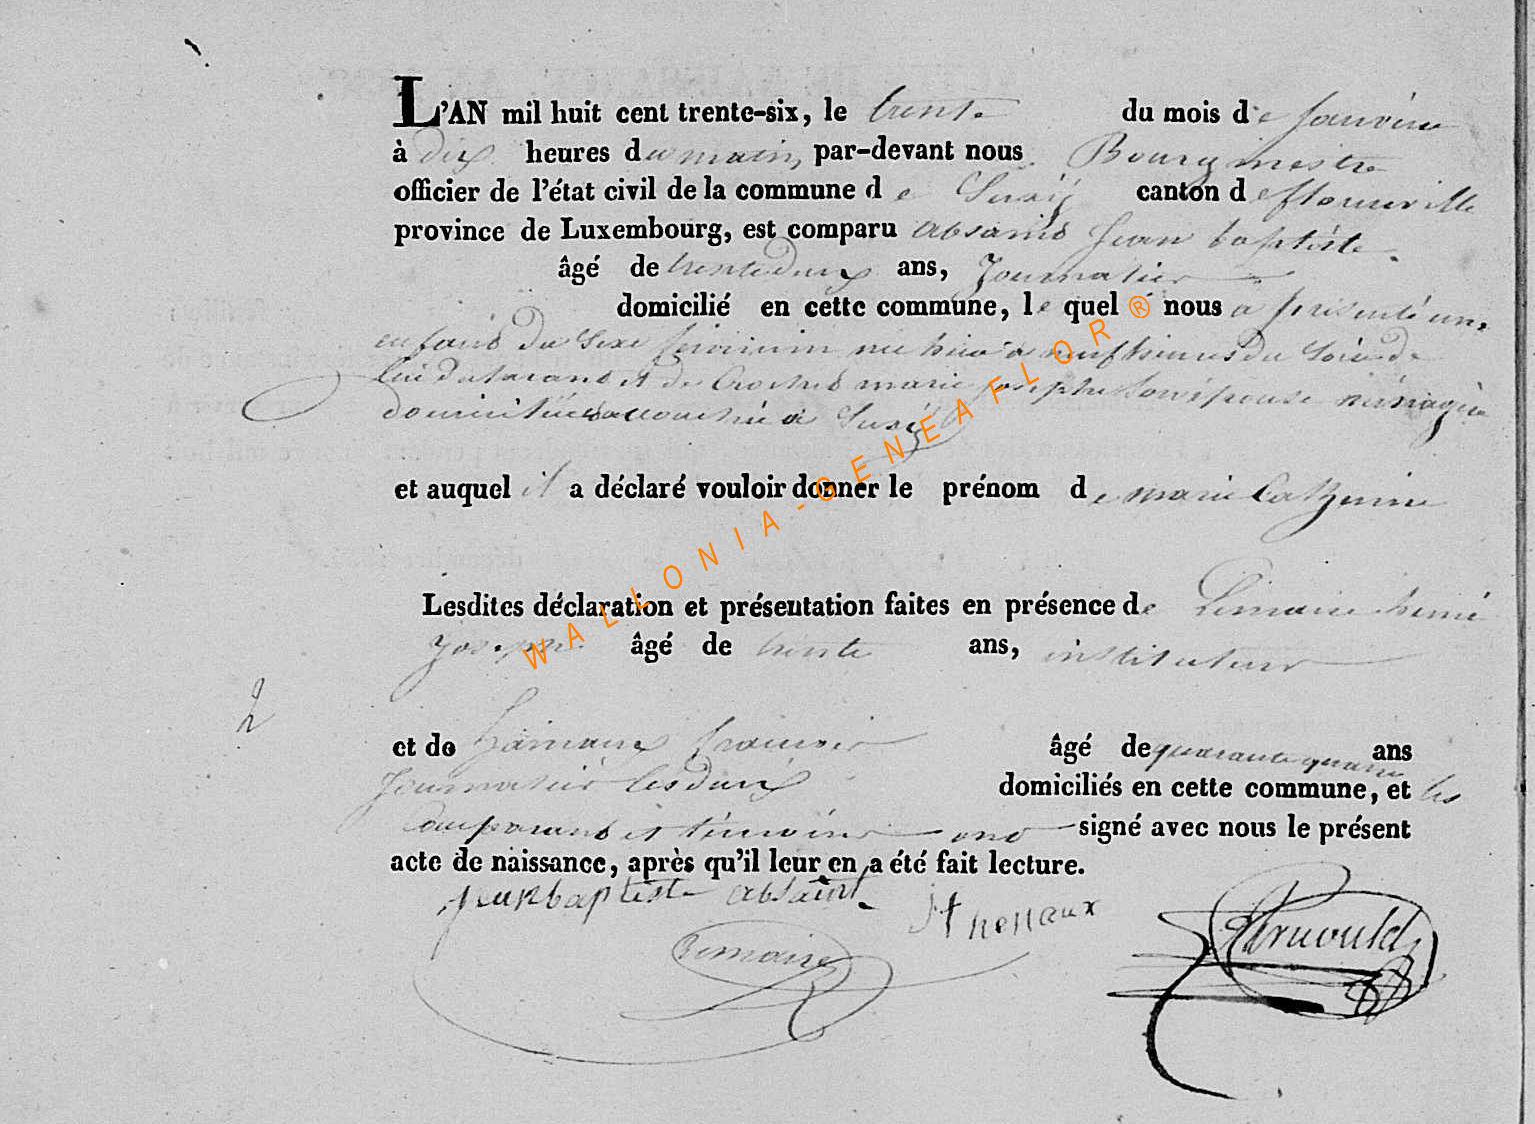 L'AN mil huit cent trente-six, le trente du mois de janvier
à dix heures du matin, par-devant nous Bourgmestre
officier de l'état civil de la commune de Suxÿ canton de florenville
province de Luxembourg, est comparu absaint Jean baptiste
âgé de trente deux ans, Journalier
domicilié en cette commune, le quel nous a présenté un
enfant du Sexe féminin née hier à neuf heures du Soir de
lui déclarant et de marie josephe Son épouse ménagère
domiciliée accouchée à Suxÿ
et auquel il a déclaré vouloir donner le prénom de marie Catherine
WALLONIA-GENEAFLOR®
Lesdites déclaration et présentation faites en présence de Lemaire
Joseph âgé de trente ans, instituteur
2
et de françois âgé de quarante quatre ans
Journalier lesdeux domiciliés en cette commune, et les
Comparant et témoins ont signé avec nous le présent
acte de naissance, après qu'il leur en a été fait lecture.
jean baptiste absaint
Lemaire
Arnould